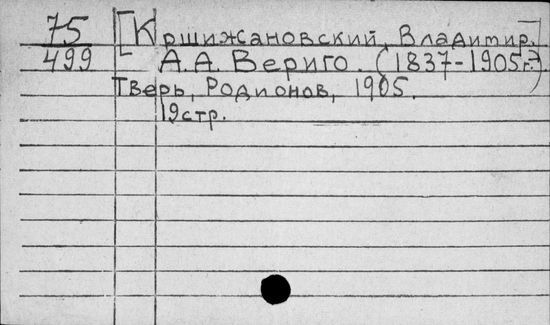 75 [Кршижановский, Владимир.]
499 А.А. Вериго. (1837-1905г.)
Тверь, Родионов, 1905.
19стр.